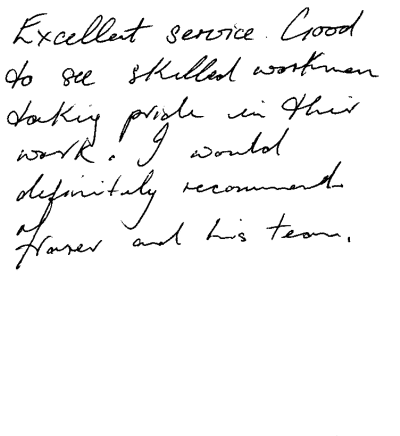 Excellent service. Good
to see skilled workmen
taking pride in their
work. I would
definitely recommend
Fraser and his team.